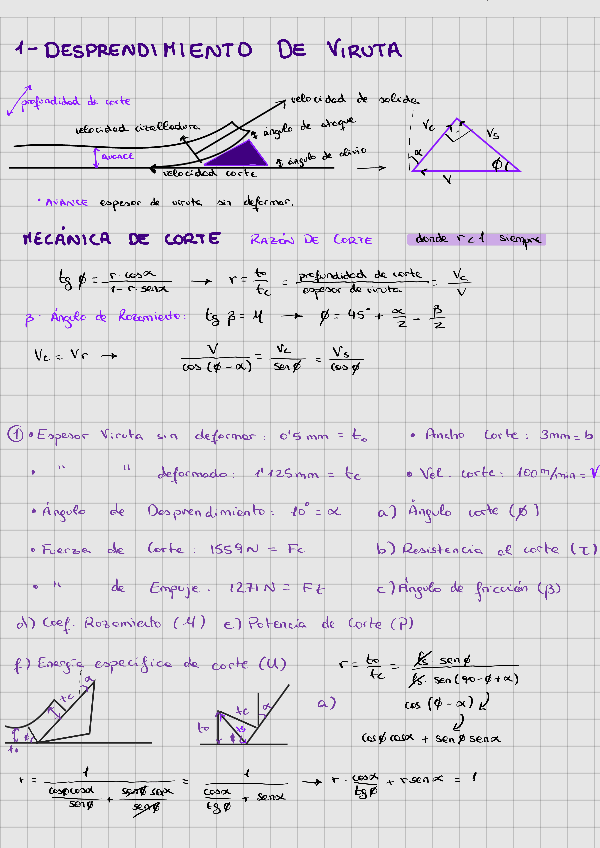 1- DESPRENDIMIENTO DE VIRUTA
profundidad de corte
velocidad de salida
velocidad cizalladura
ángulo de ataque
AVANCE
ángulo de alivio
velocidad corte
Vc
Vs
α
φ
V
· AVANCE espesor de viruta sin deformar.
MECÁNICA DE CORTE RAZÓN DE CORTE donde r < 1 siempre
tg φ = r · cosα / 1 - r · senα → r = to / tc = profundidad de corte / espesor de viruta = Vc / V
β · Ángulo de Rozamiento: tg β = μ → φ = 45° + α/2 - β/2
Vc = Vr → V / cos (φ - α) = Vc / senφ = Vs / cosφ
① • Espesor Viruta sin deformar : 0'5 mm = to • Ancho corte : 3mm = b
• " " deformado : 1'125 mm = tc • Vel. corte : 100 m/min = V
• Ángulo de Desprendimiento : 10° = α a) Ángulo corte (φ)
• Fuerza de Corte : 1559 N = Fc b) Resistencia al corte (τ)
• " de Empuje : 1271 N = Ft c) Ángulo de fricción (β)
d) Coef. Rozamiento (μ) e) Potencia de Corte (P)
f) Energía específica de corte (U) r = to / tc = fs senφ / fs · sen (90 - φ + α)
a) cos (φ - α)
cosφ cosα + senφ senα
tc
α
to
φ
to
tc
α
ts
φ
r = 1 / cosφ cosα / senφ + senφ senα / senφ = 1 / cosα / tgφ + senα → r · cosα / tgφ + r senα = 1